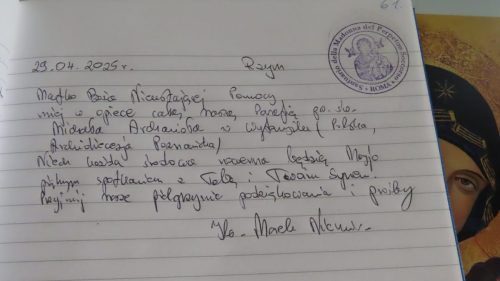 61.
29.04.2025r. Rzym
Santuario della Madonna del Perpetuo Soccorso • ROMA •
Matko Boża Nieustającej Pomocy
miej w opiece całą naszą Parafię pw. św.
Michała Archanioła w Wytomyślu (Polska,
Archidiecezja Poznańska)
Niech każda środowa nowenna będzie
pięknym spotkaniem z Tobą i Twoim Synem.
Przyjmij nasze pielgrzymie podziękowania i prośby
Ks. Marek